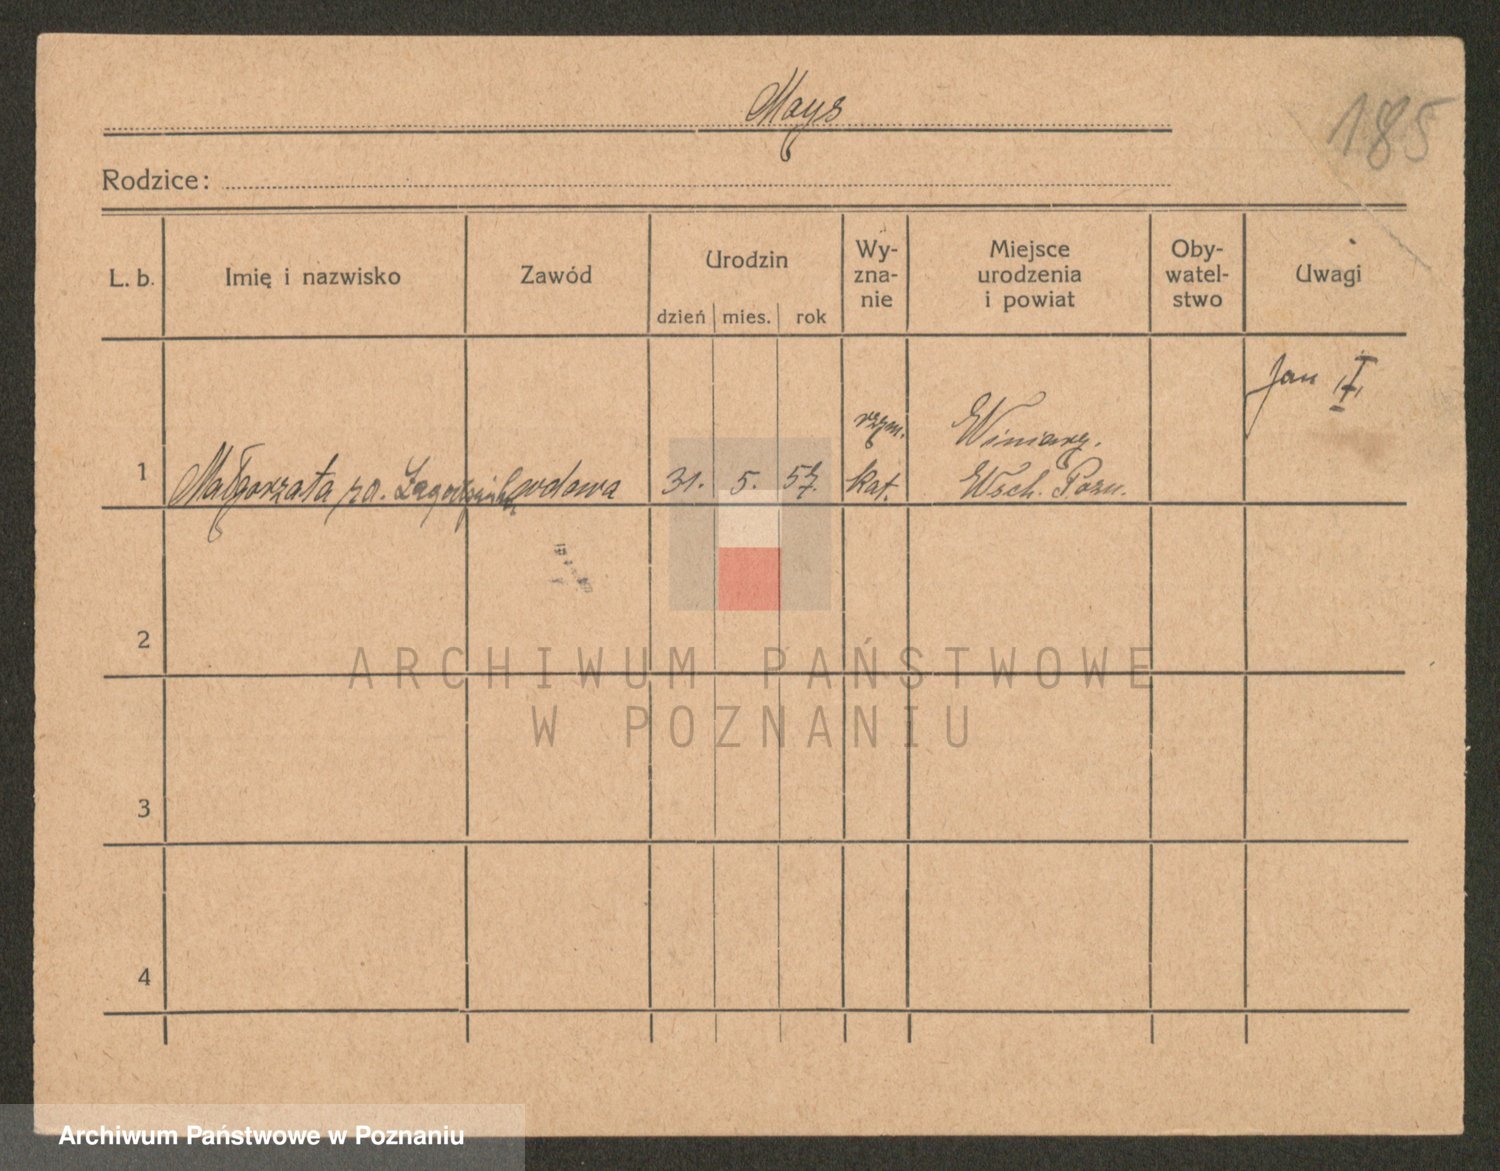 Mays
185
Rodzice:
L. b.
Imię i nazwisko
Zawód
Urodzin
dzień mies. rok
Wy-
zna-
nie
Miejsce
urodzenia
i powiat
Oby-
watel-
stwo
Uwagi
1
Małgorzata
wdowa
31. 5. 57.
rzym.
kat.
Winiary.
Wsch. Pozn.
Jan II
2
3
4
ARCHIWUM PAŃSTWOWE
W POZNANIU
Archiwum Państwowe w Poznaniu